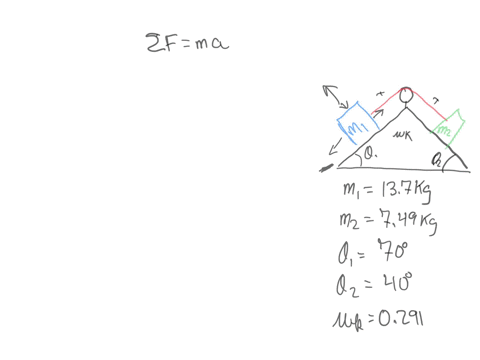 ΣF = ma
m₁
m₂
μk
θ₁
θ₂
m₁ = 13.7 kg
m₂ = 7.49 kg
θ₁ = 70°
θ₂ = 40°
μk = 0.291